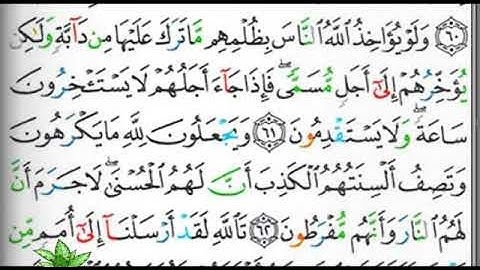 ﴿٦٠﴾ وَلَوْ يُؤَاخِذُ ٱللَّهُ ٱلنَّاسَ بِظُلْمِهِم مَّا تَرَكَ عَلَيْهَا مِن دَآبَّةٍ وَلَٰكِن
يُؤَخِّرُهُمْ إِلَىٰٓ أَجَلٍ مُّسَمًّى ۖ فَإِذَا جَآءَ أَجَلُهُمْ لَا يَسْتَـْٔخِرُونَ
سَاعَةً ۖ وَلَا يَسْتَقْدِمُونَ ﴿٦١﴾ وَيَجْعَلُونَ لِلَّهِ مَا يَكْرَهُونَ
وَتَصِفُ أَلْسِنَتُهُمُ ٱلْكَذِبَ أَنَّ لَهُمُ ٱلْحُسْنَىٰ ۖ لَا جَرَمَ أَنَّ
لَهُمُ ٱلنَّارَ وَأَنَّهُم مُّفْرَطُونَ ﴿٦٢﴾ تَٱللَّهِ لَقَدْ أَرْسَلْنَآ إِلَىٰٓ أُمَمٍ مِّن